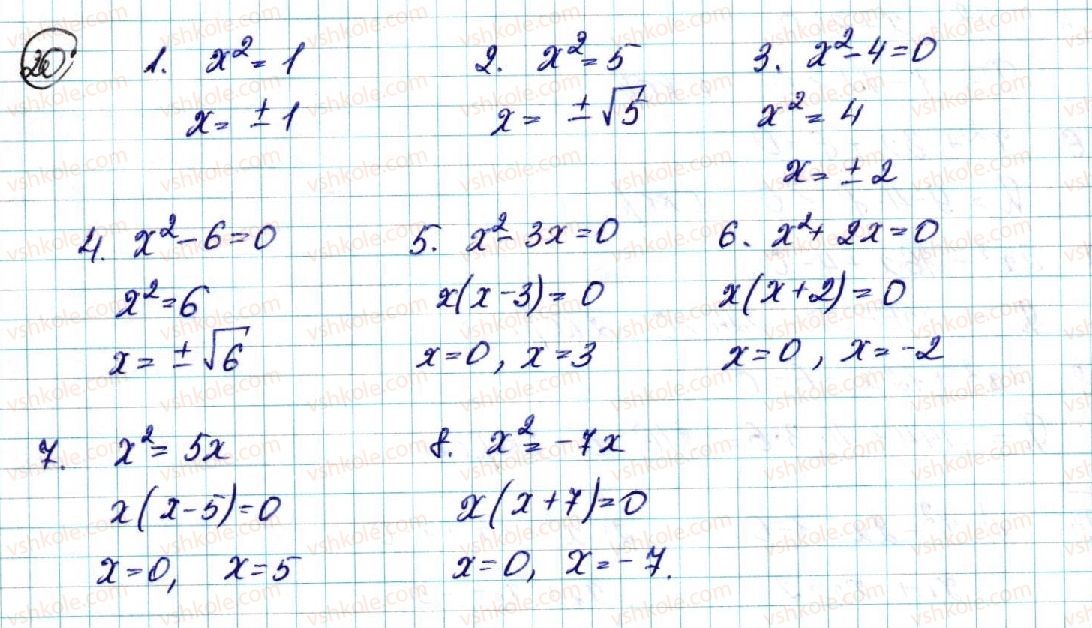 20
1. x² = 1
x = ± 1
2. x² = 5
x = ± √5
3. x² - 4 = 0
x² = 4
x = ± 2
4. x² - 6 = 0
x² = 6
x = ± √6
5. x² - 3x = 0
x(x - 3) = 0
x = 0, x = 3
6. x² + 2x = 0
x(x + 2) = 0
x = 0, x = -2
7. x² = 5x
x(x - 5) = 0
x = 0, x = 5
8. x² = -7x
x(x + 7) = 0
x = 0, x = -7.
vshkole.com